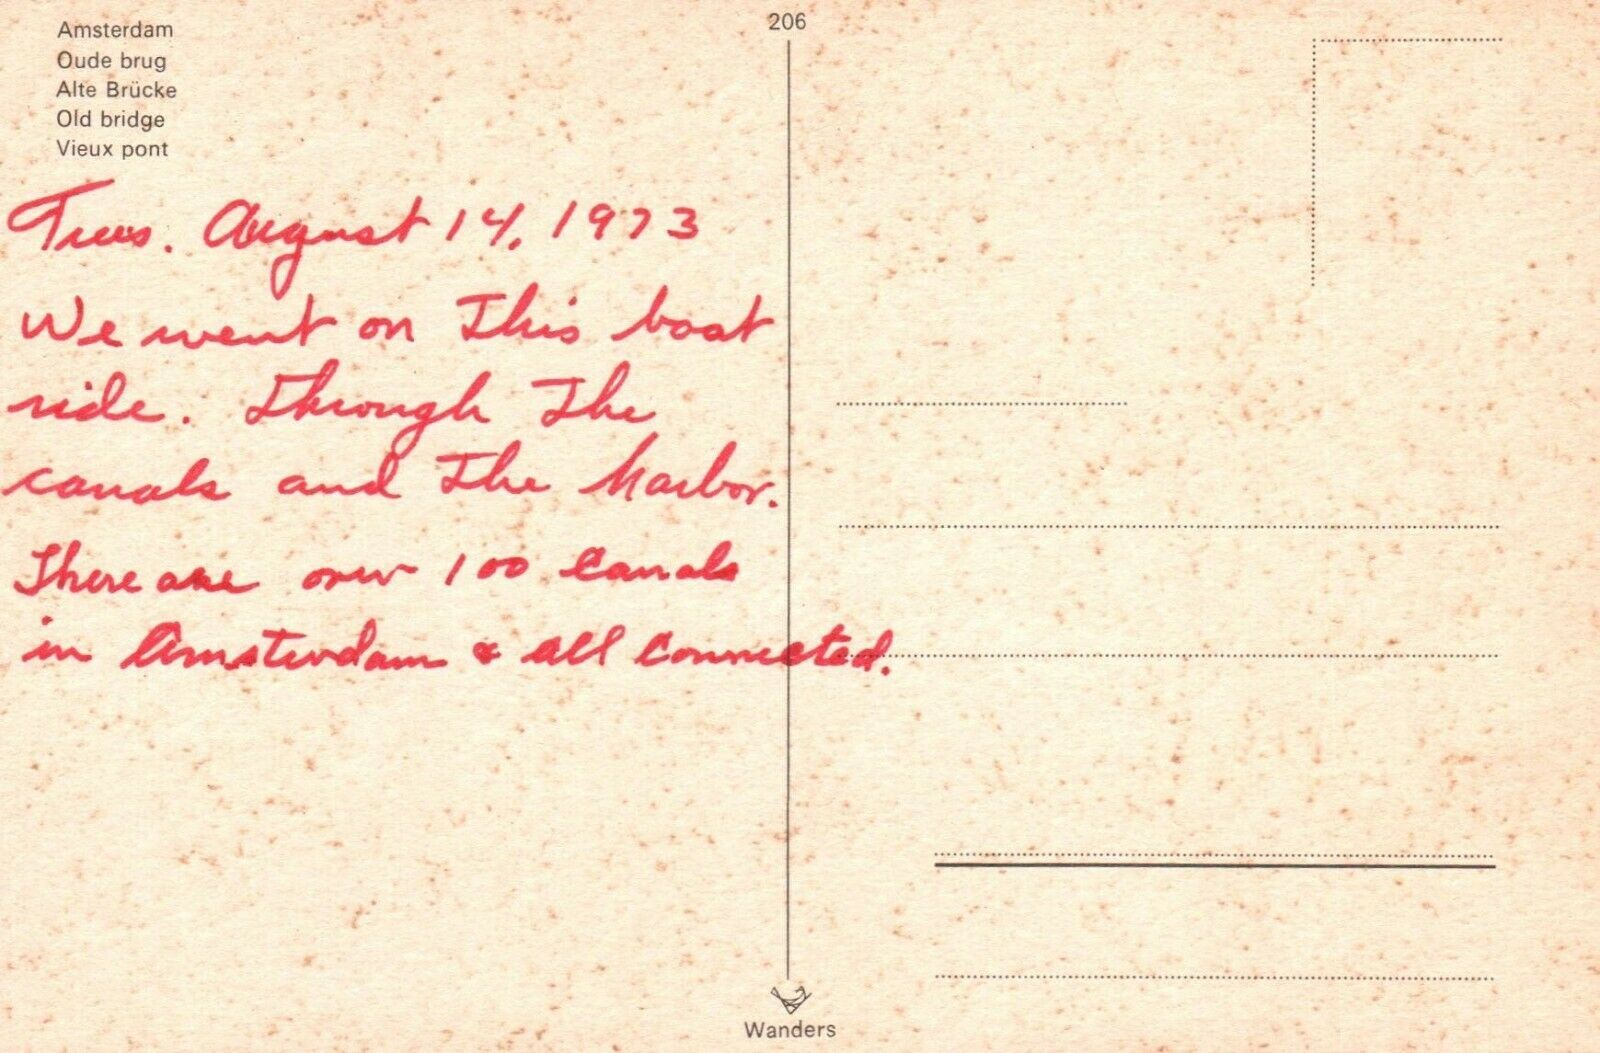 Amsterdam
Oude brug
Alte Brücke
Old bridge
Vieux pont
206
Tues. August 14, 1973
We went on This boat
ride. Through The
canals and The Harbor.
There are over 100 Canals
in Amsterdam & all Connected.
Wanders